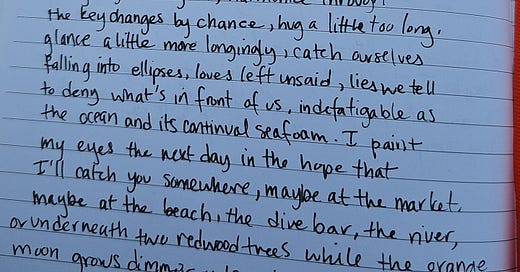 the key changes by chance, hug a little too long.
glance a little more longingly, catch ourselves
falling into ellipses, loves left unsaid, lies we tell
to deny what's in front of us, indefatigable as
the ocean and its continual seafoam. I paint
my eyes the next day in the hope that
I'll catch you somewhere, maybe at the market,
maybe at the beach, the dive bar, the river,
or underneath two redwood trees while the orange
moon grows dimmer